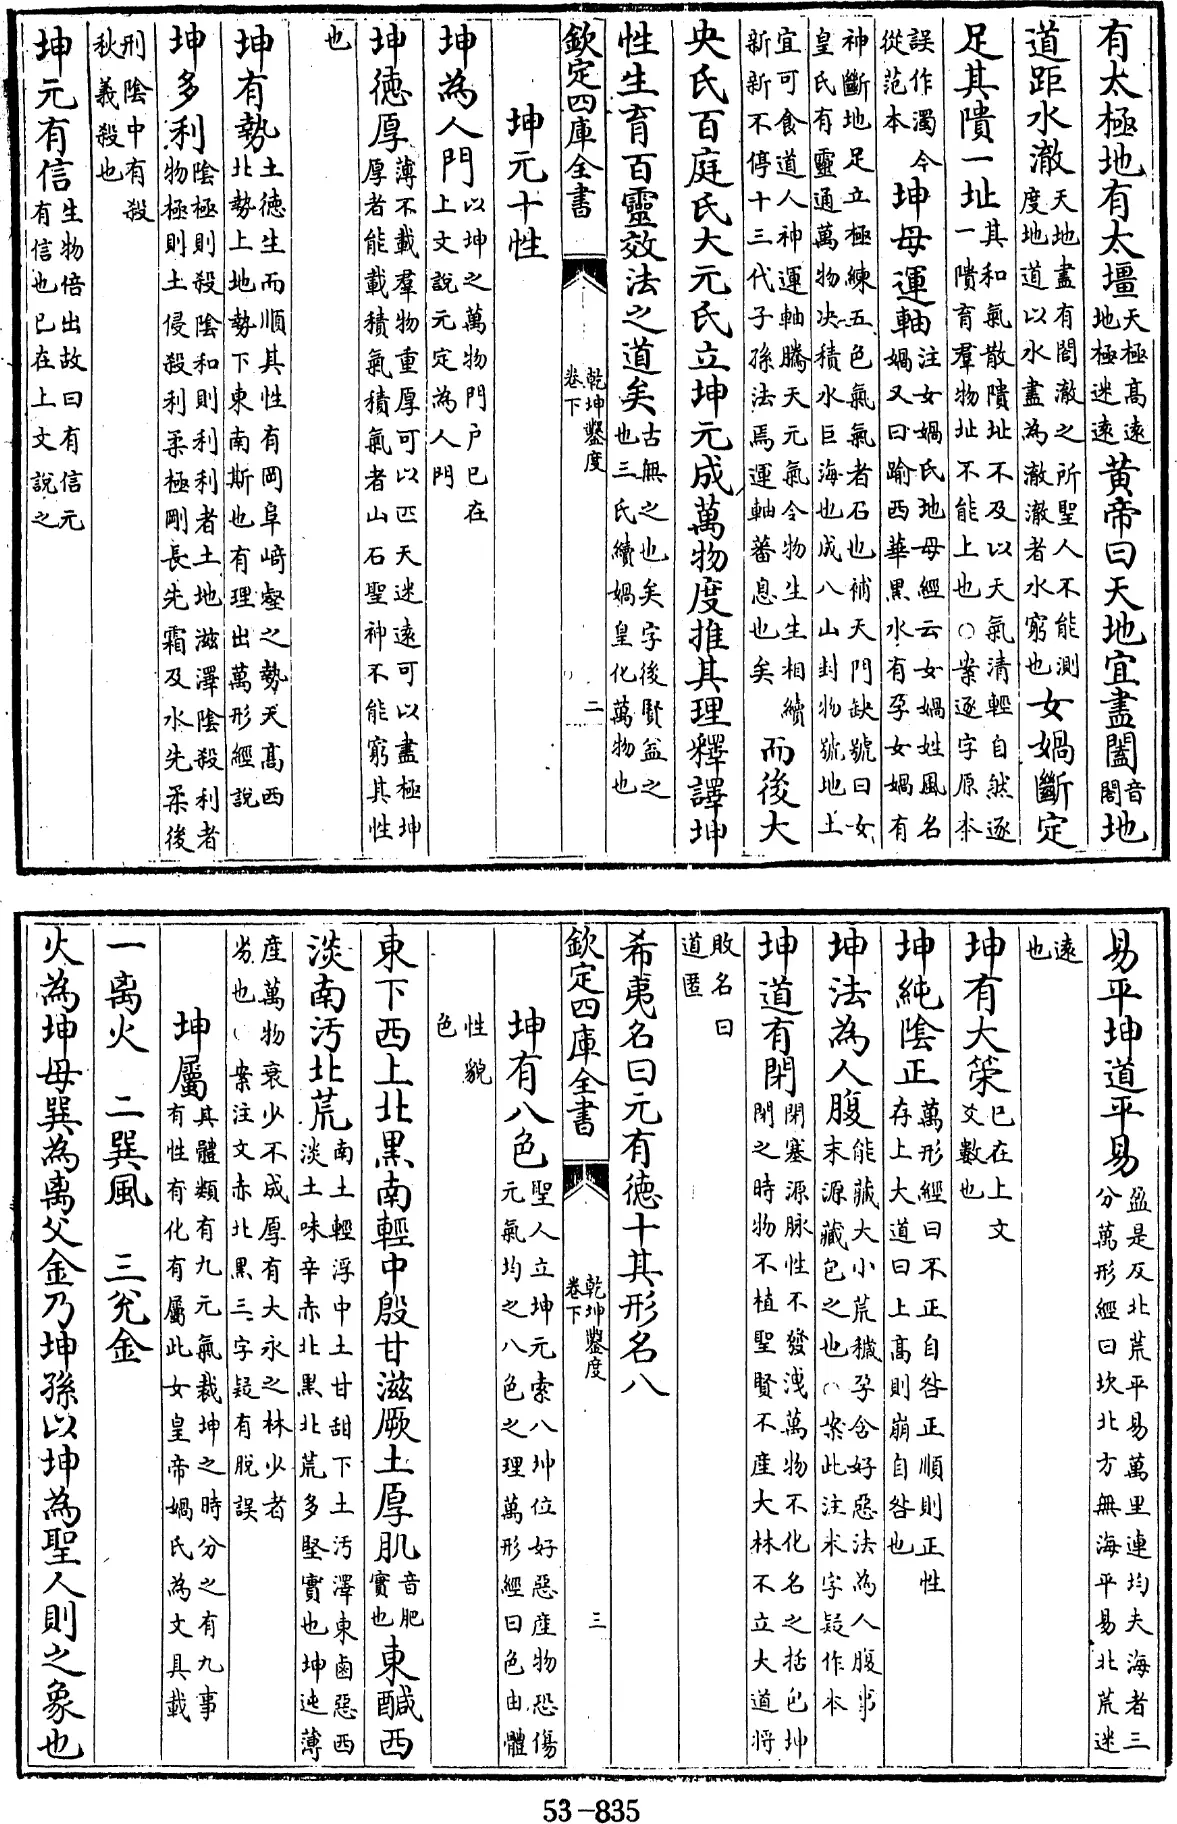 有太極地有太壇天極高遠地極迷遠黄帝曰天地宜盡闔音閤地
道距水澈天地盡有閤澈之所聖人不能測度地道以水盡為澈澈者水窮也女媧斷定
足其隤一址其和氣散隤址不及以天氣清輕自然逐一隤育羣物址不能上也○案逐字原本
誤作濁今從范本坤母運軸注女媧氏地母經云女媧姓風名媧又曰踰西華黑水有孕女媧有
神斷地足立極練五色氣氣者石也補天門缺號曰女皇氏有靈通萬物决積水巨海也成八山封物號地土
宜可食道人神運軸騰天元氣令物生生相續新新不停十三代子孫法焉運軸蕃息也矣而後大
央氏百庭氏大元氏立坤元成萬物度推其理釋譯坤
性生育百靈效法之道矣古無之也矣字後賢益之也三氏續媧皇化萬物也
欽定四庫全書 乾坤鑿度卷下 二
坤元十性
坤為人門以坤之萬物門户已在上文說元定為人門
坤德厚薄不載羣物重厚可以匹天迷遠可以盡極坤厚者能載積氣積氣者山石聖神不能窮其性
也
坤有勢土德生而順其性有岡阜﨑壑之勢天髙西北勢上地勢下東南斯也有理出萬形經說
坤多利隂極則殺隂和則利利者土地滋澤隂殺利者物極則土侵殺利柔極剛長先霜及水先柔後
刑隂中有殺秋義殺也
坤元有信生物倍出故曰有信元有信也已在上文說之
易平坤道平易盈是及北荒平易萬里連均夫海者三分萬形經曰坎北方無海平易北荒迷
遠也
坤有大策已在上文爻數也
坤純隂正萬形經曰不正自咎正順則正性存上大道曰上髙則崩自咎也
坤法為人腹能藏大小荒穢孕含好惡法為人腹事末源藏包之也○案此注末字疑作本
坤道有閉閉塞源脉性不發洩萬物不化名之括包坤閉之時物不植聖賢不產大林不立大道將
敗名曰道匿
希夷名曰元有德十其形名八
欽定四庫全書 乾坤鑿度卷下 三
坤有八色聖人立坤元索八坤位好惡產物恐傷元氣均之八色之理萬形經曰色由體
性貌色
東下西上北黑南輕中殷甘滋厥土厚肌音肥實也東鹹西
淡南汚北荒南土輕浮中土甘甜下土汚澤東鹵惡西淡土味辛赤北黑北荒多堅實也坤迆薄
產萬物衰少不成厚有大永之林少者劣也○案注文赤北黑三字疑有脫誤
坤屬其體類有九元氣裁坤之時分之有九事有性有化有屬此女皇帝媧氏為文具載
一离火 二巽風 三兊金
火為坤母巽為离父金乃坤孫以坤為聖人則之象也
53-835